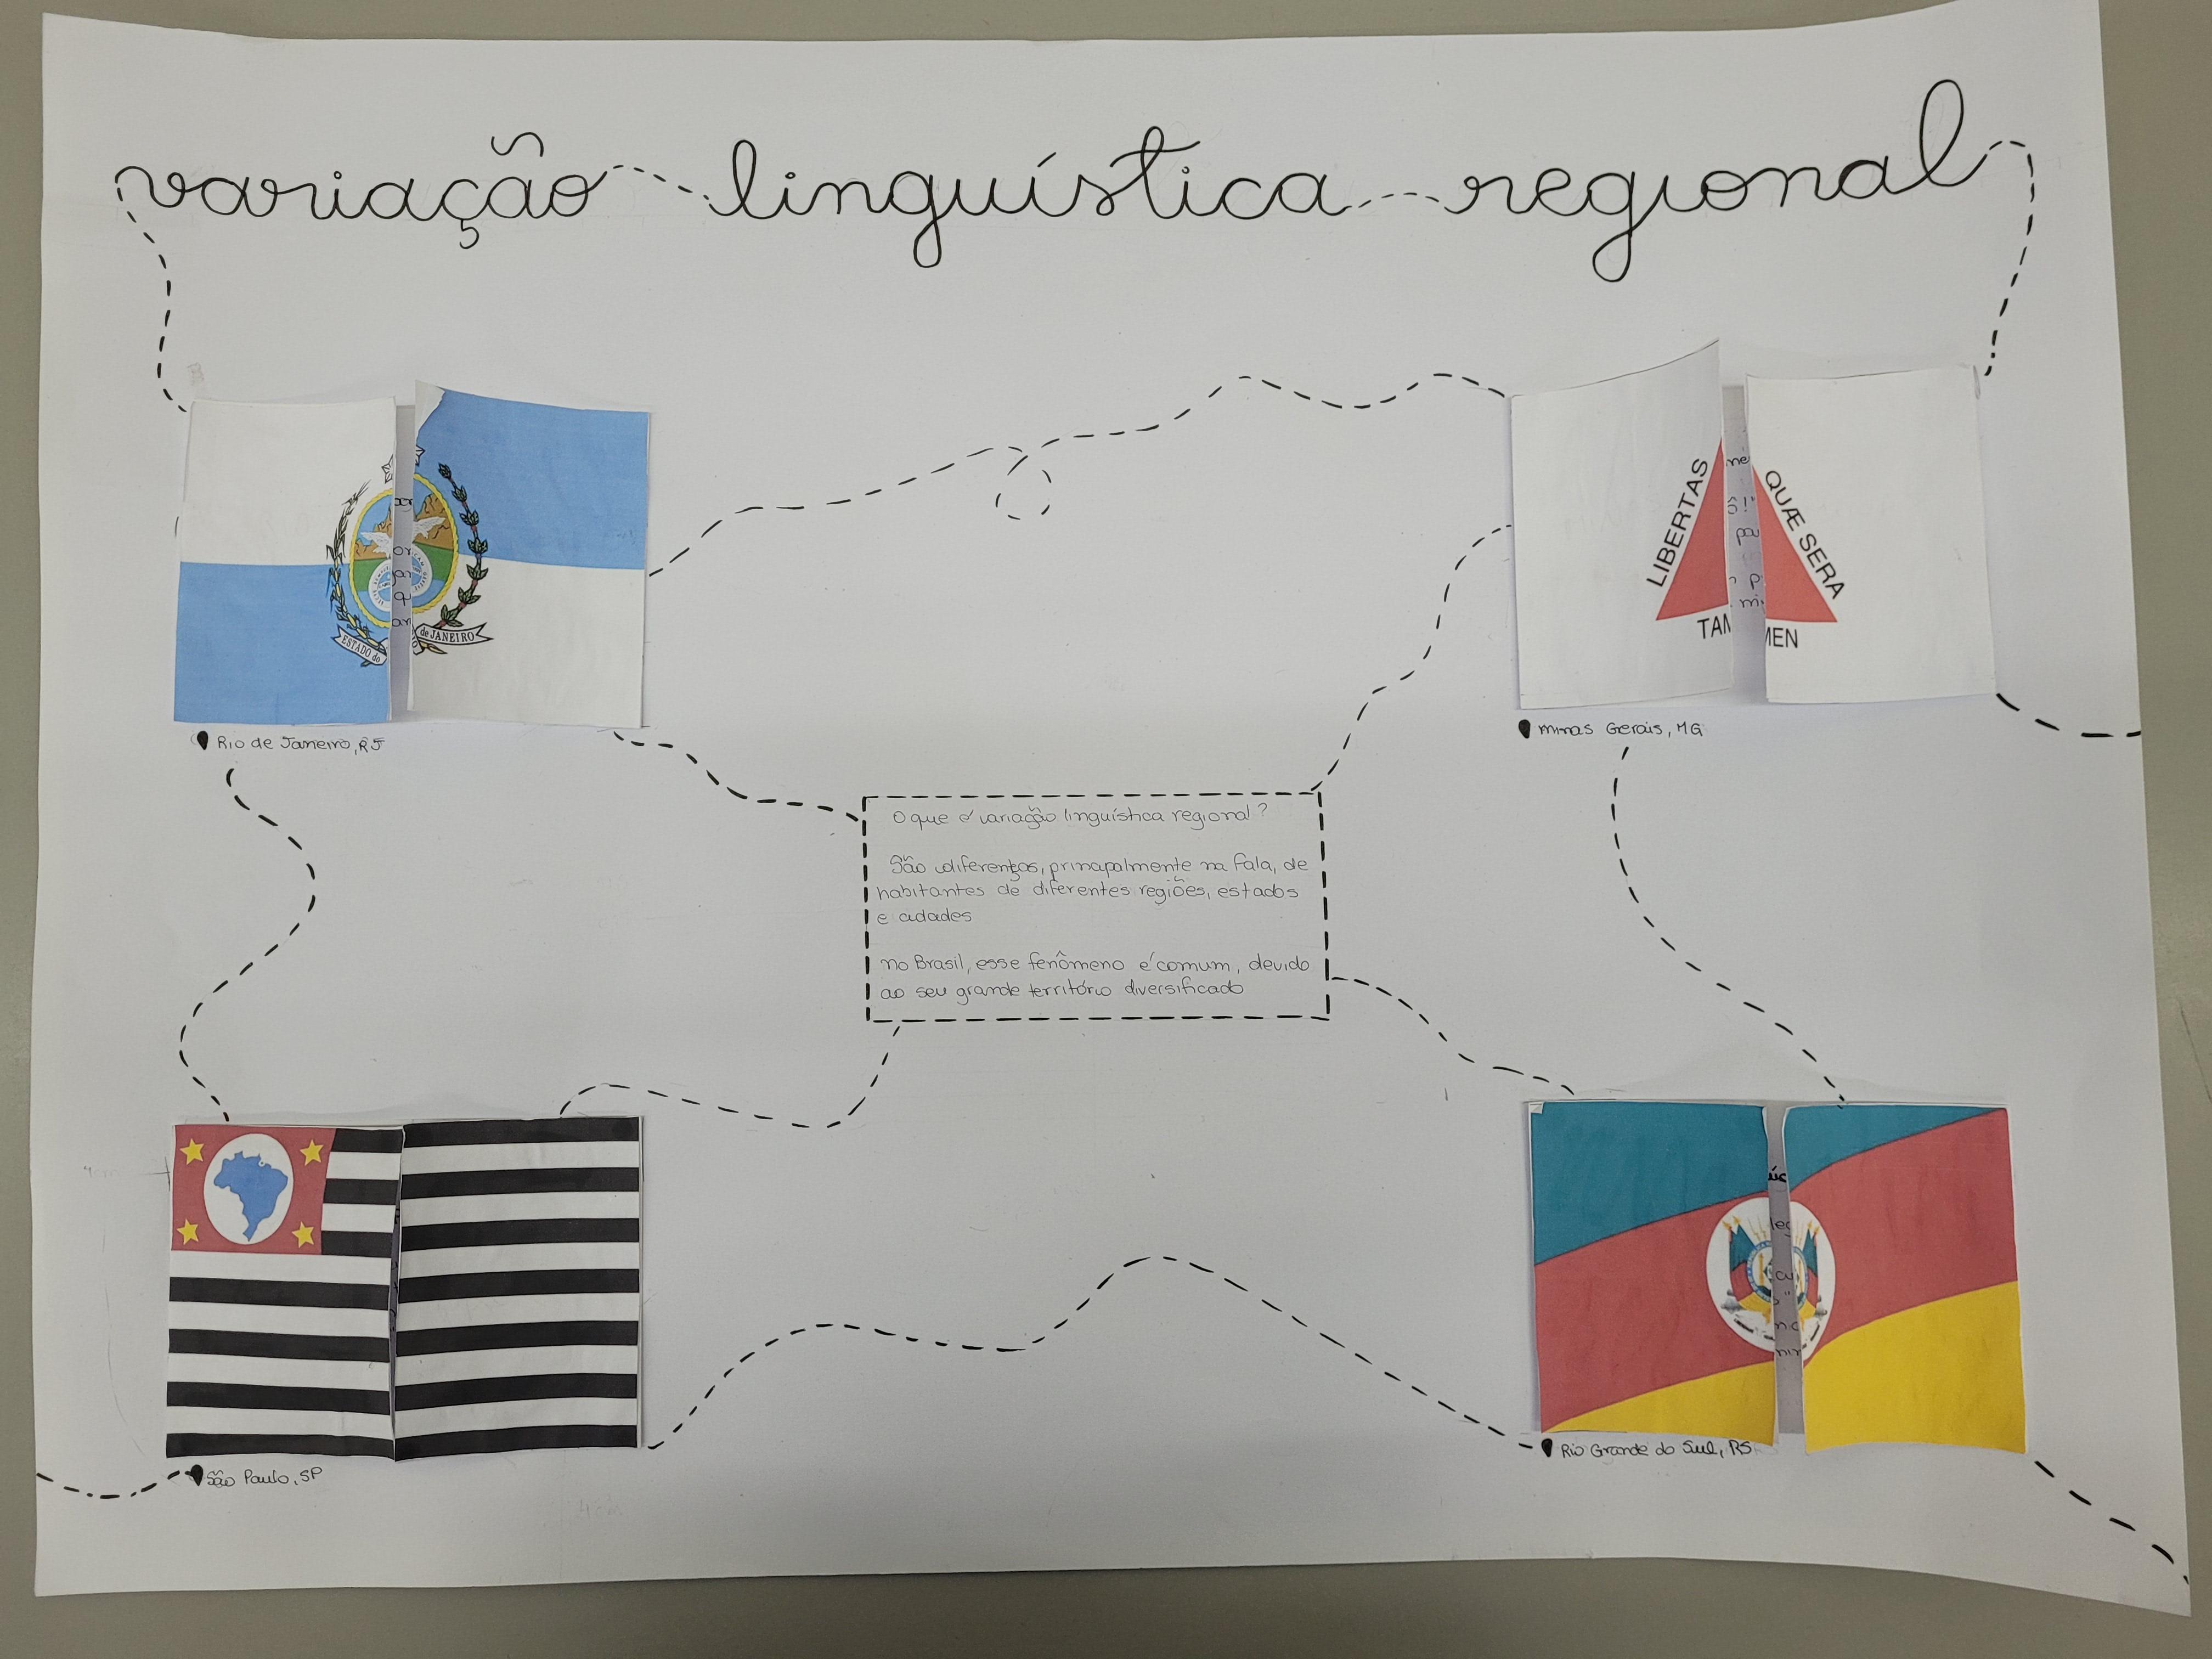 variação linguística regional
LIBERTAS
QUÆ SERA
TAM
MEN
ESTADO do
de JANEIRO
Rio de Janeiro, RJ
Minas Gerais, MG
O que é variação linguística regional?
São diferenças, principalmente na fala, de
habitantes de diferentes regiões, estados
e cidades
No Brasil, esse fenômeno é comum, devido
ao seu grande território diversificado
São Paulo, SP
Rio Grande do Sul, RS